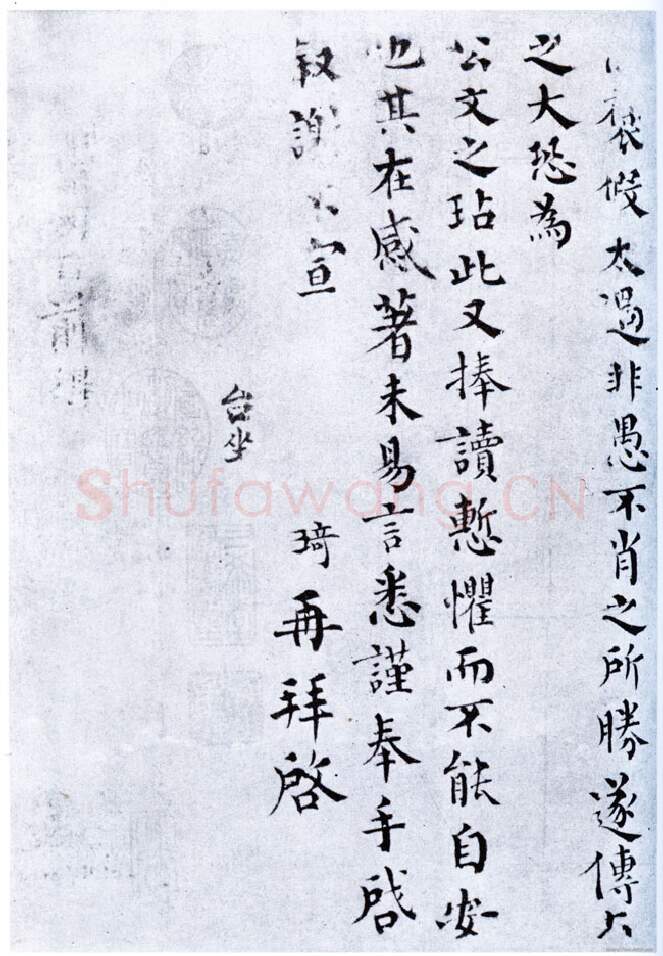 褒假太過非愚不肖之所勝遂傳
之大恐為
公文之玷此又捧讀慙懼而不能自安
也其在感著未易言悉謹奉手啟
叙謝不宣
琦再拜啓
台坐
前
Shufawang.CN